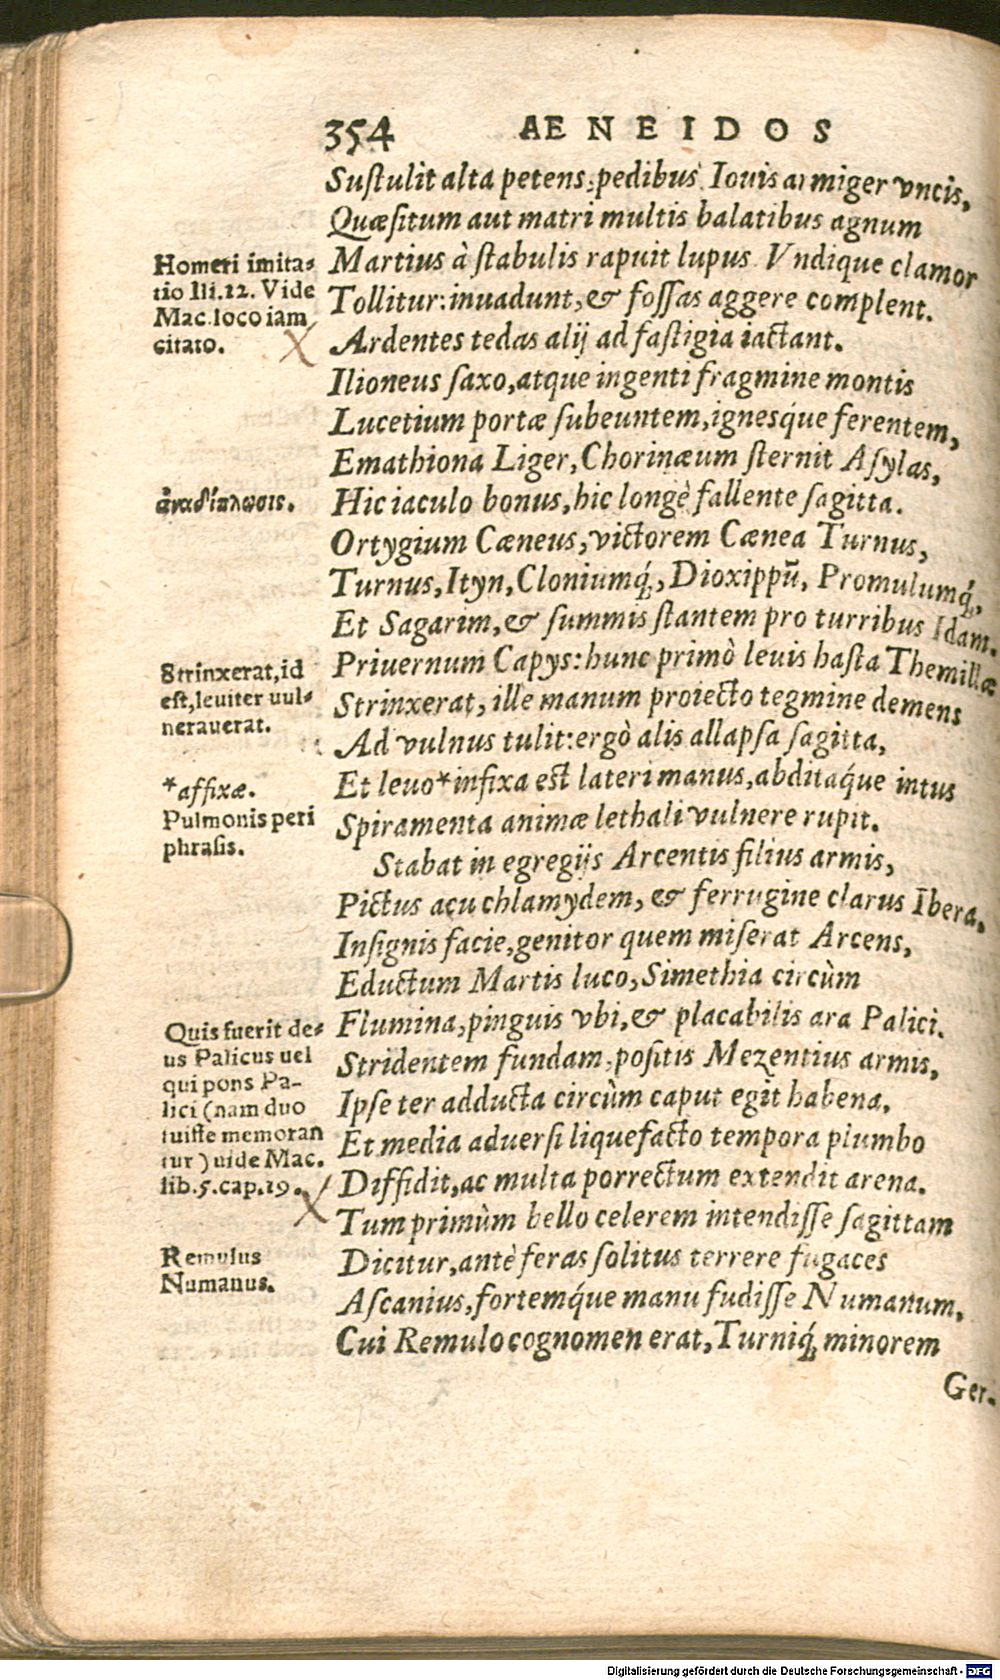 354 AENEIDOS
Sustulit alta petens, pedibus Iouis armiger vncis,
Quæsitum aut matri multis balatibus agnum
Martius à stabulis rapuit lupus. Vndique clamor
Tollitur: inuadunt, & fossas aggere complent.
Ardentes tedas alij ad fastigia iactant.
Ilioneus saxo, atque ingenti fragmine montis
Lucetium portæ subeuntem, ignesq́ue ferentem,
Emathiona Liger, Chorinæum sternit Asylas,
Hic iaculo bonus, hic longè fallente sagitta.
Ortygium Cæneus, victorem Cænea Turnus,
Turnus, Ityn, Cloniumq́;, Dioxippū, Promulumq́;,
Et Sagarim, & summis stantem pro turribus Idam.
Priuernum Capys: hunc primò leuis hasta Themillæ
Strinxerat, ille manum proiecto tegmine demens
Ad vulnus tulit: ergò alis allapsa sagitta,
Et leuo* infixa est lateri manus, abditaq́ue intus
Spiramenta animæ lethali vulnere rupit.
Stabat in egregijs Arcentis filius armis,
Pictus acu chlamydem, & ferrugine clarus Ibera,
Insignis facie, genitor quem miserat Arcens,
Eductum Martis luco, Simethia circùm
Flumina, pinguis vbi, & placabilis ara Palici.
Stridentem fundam, positis Mezentius armis,
Ipse ter adducta circùm caput egit habena,
Et media aduersi liquefacto tempora plumbo
Diffidit, ac multa porrectum extendit arena.
Tum primùm bello celerem intendisse sagittam
Dicitur, antè feras solitus terrere fugaces
Ascanius, fortemq́ue manu fudisse Numanum,
Cui Remulo cognomen erat, Turniq́; minorem
Ger.
Homeri imita-
tio Ili.12. Vide
Mac. loco iam
citato.
ἀναδίπλωσις.
Strinxerat, id
est, leuiter uul-
nerauerat.
*affixæ.
Pulmonis peri
phrasis.
Quis fuerit de-
us Palicus uel
qui pons Pa-
lici (nam duo
fuisse memoran
tur) uide Mac.
lib.5.cap.19.
Remulus
Numanus.
Digitalisierung gefördert durch die Deutsche Forschungsgemeinschaft - DFG